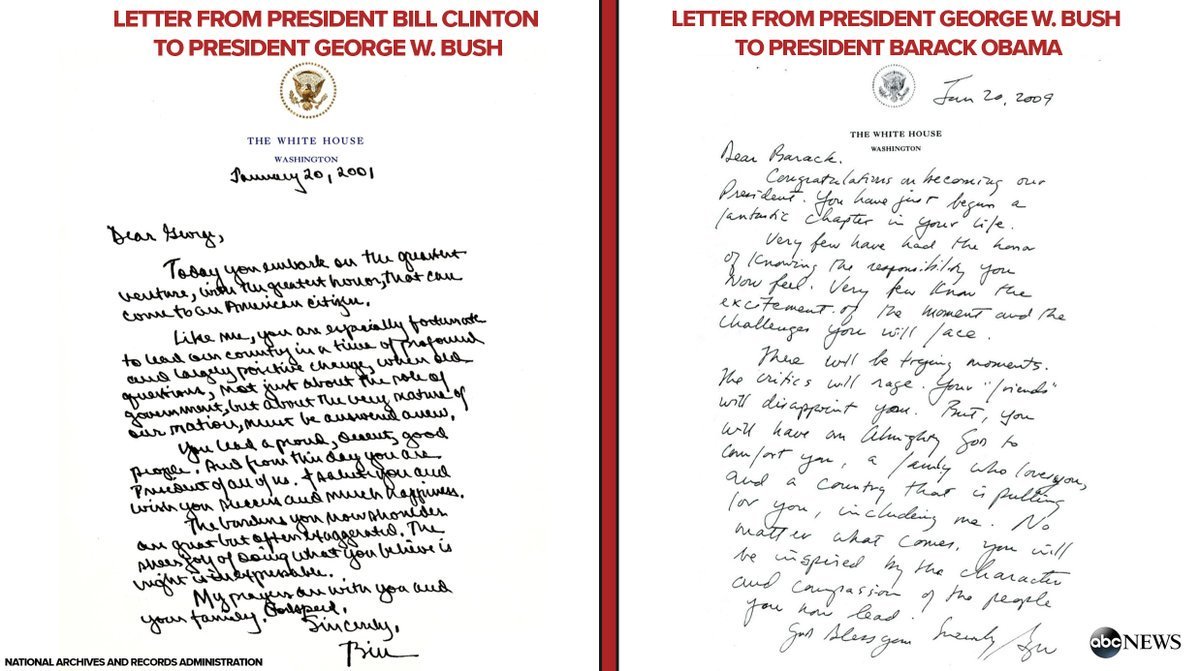 LETTER FROM PRESIDENT BILL CLINTON
TO PRESIDENT GEORGE W. BUSH
THE WHITE HOUSE
WASHINGTON
January 20, 2001
Dear George,
Today you embark on the greatest
venture, with the greatest honor, that can
come to an American citizen.
Like me, you are especially fortunate
to lead our country in a time of profound
and largely positive change, when old
questions, not just about the role of
government, but about the very nature of
our nation, must be answered anew.
You lead a proud, decent, good
people. And from this day you are
President of all of us. I salute you and
wish you success and much happiness.
The burdens you now shoulder
are great but often exaggerated. The
sheer joy of doing what you believe is
right is inexpressible.
My prayers are with you and
your family. Godspeed.
Sincerely,
Bill
NATIONAL ARCHIVES AND RECORDS ADMINISTRATION
LETTER FROM PRESIDENT GEORGE W. BUSH
TO PRESIDENT BARACK OBAMA
Jan 20, 2009
THE WHITE HOUSE
WASHINGTON
Dear Barack,
Congratulations on becoming our
President. You have just begun a
fantastic chapter in your life.
Very few have had the honor
of knowing the responsibility you
now feel. Very few know the
excitement of the moment and the
challenges you will face.
There will be trying moments.
The critics will rage. Your "friends"
will disappoint you. But, you
will have an Almighty God to
comfort you, a family who loves you,
and a country that is pulling
for you, including me. No
matter what comes, you will
be inspired by the character
and compassion of the people
you now lead.
God bless you Sincerely,
abc NEWS